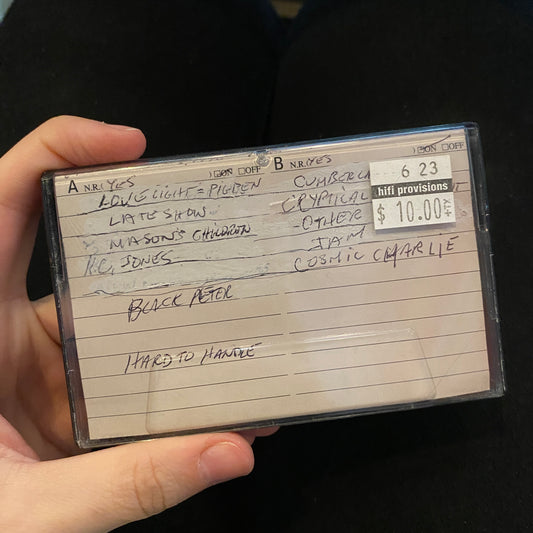 A N.R. (YES ) ☐ON ☐OFF
LOVELIGHT = PIGPEN
LATE SHOW
MASON'S CHILDREN
K.C. JONES
BLACK PETER
HARD TO HANDLE
B N.R. (YES ) ☐ON ☐OFF
CUMBERL
CRYPTICAL
OTHER
JAM
COSMIC CHARLIE
6 23
hifi provisions
$ 10.00